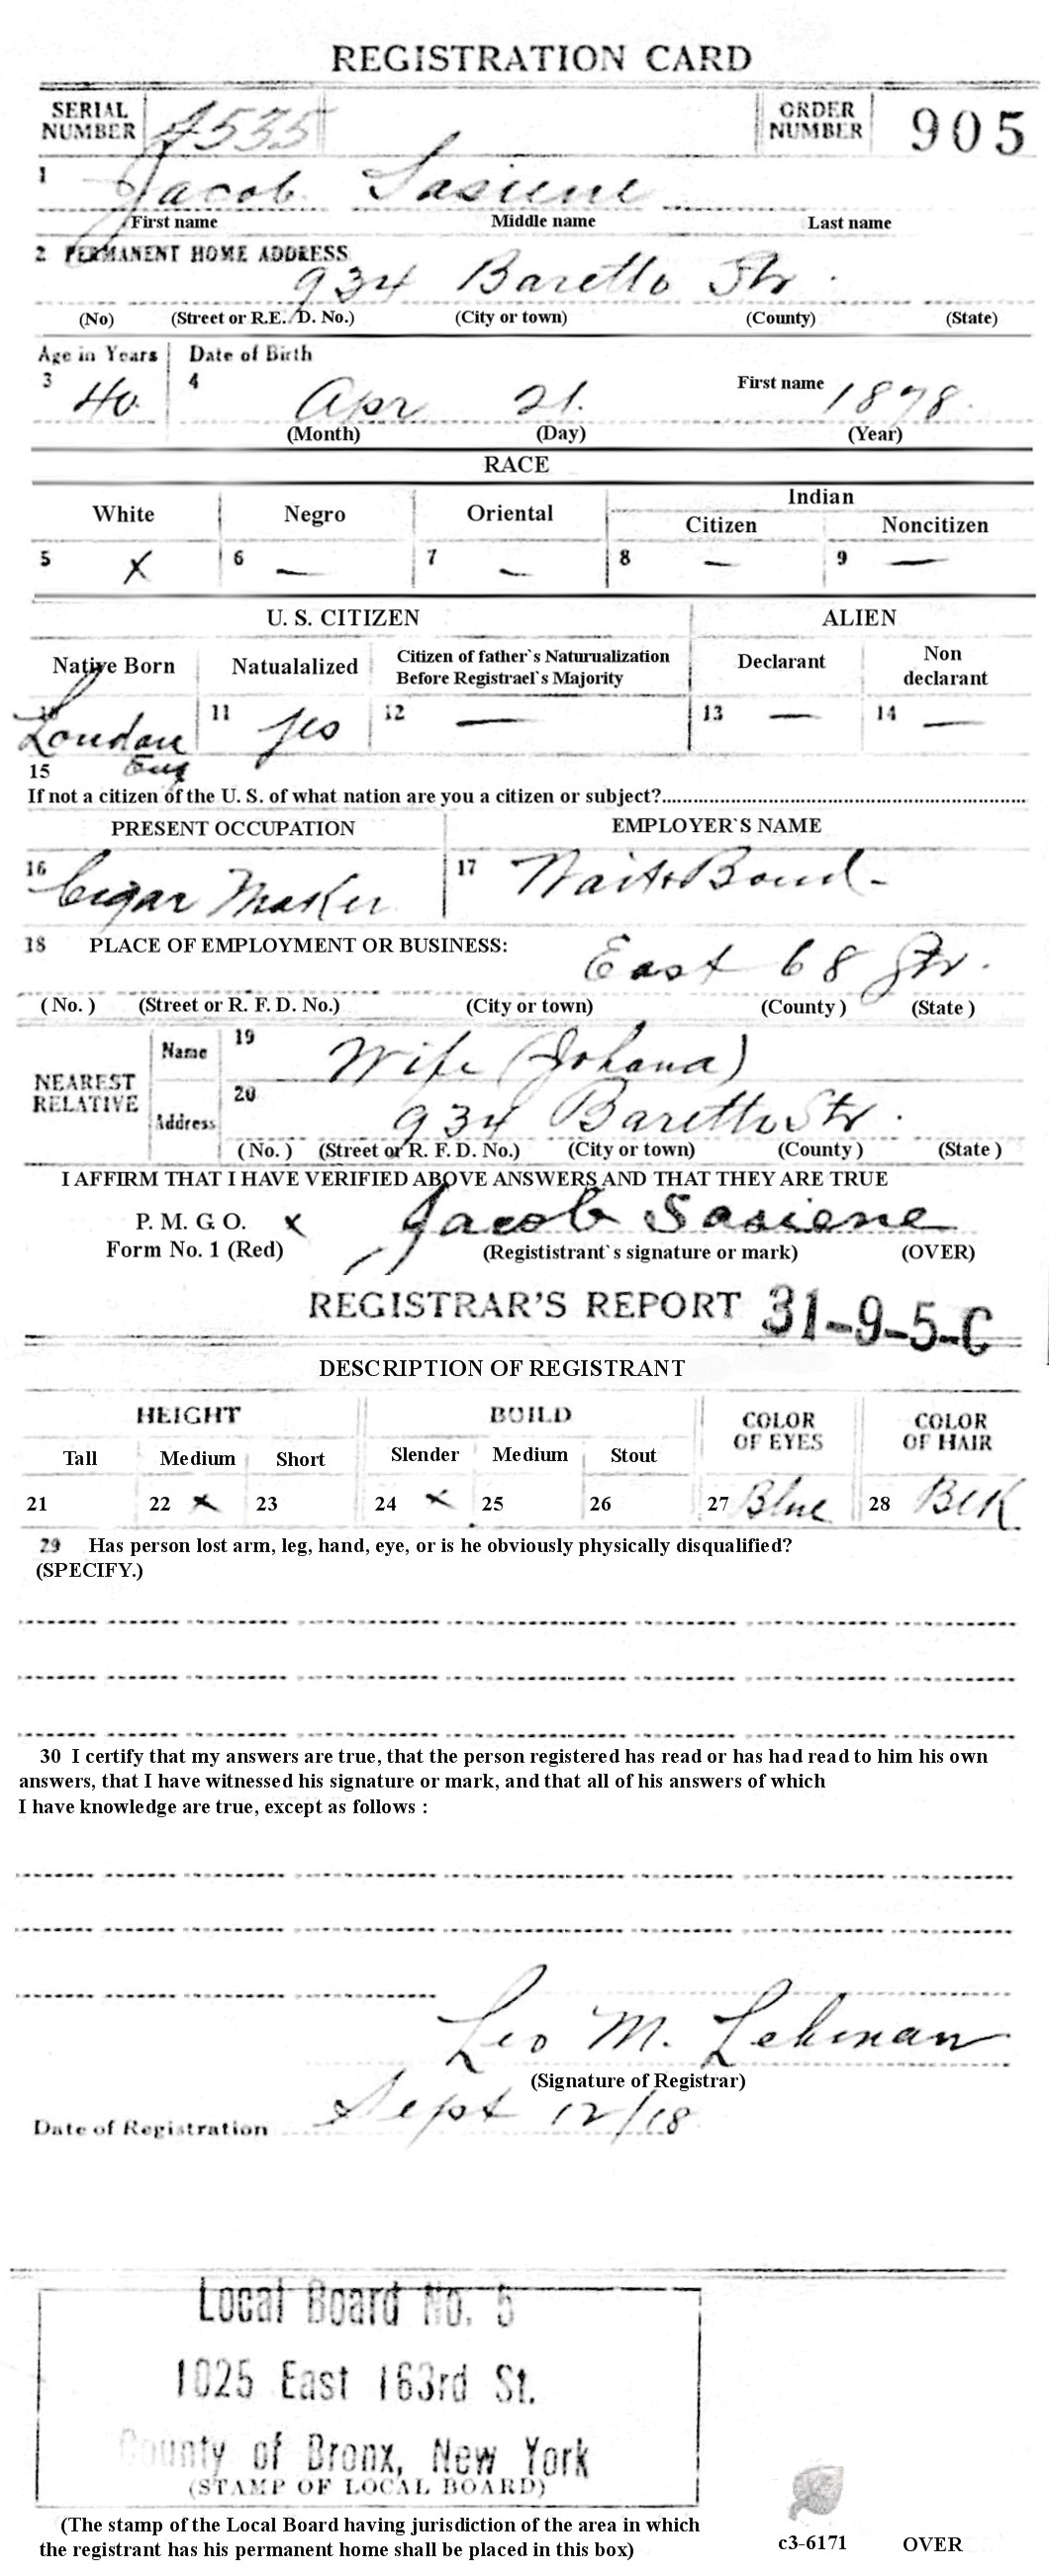 REGISTRATION CARD
SERIAL NUMBER 4535 ORDER NUMBER 905
1 Jacob Sasiene
First name Middle name Last name
2 PERMANENT HOME ADDRESS
934 Baretto Str.
(No) (Street or R.E. D. No.) (City or town) (County) (State)
Age in Years Date of Birth
3 40 4 Apr 21. First name 1878.
(Month) (Day) (Year)
RACE
White Negro Oriental Indian
Citizen Noncitizen
5 X 6 — 7 — 8 — 9 —
U. S. CITIZEN ALIEN
Native Born Natualalized Citizen of father`s Naturualization Before Registrael`s Majority Declarant Non declarant
10 London Eng 11 yes 12 — 13 — 14 —
15
If not a citizen of the U. S. of what nation are you a citizen or subject?
PRESENT OCCUPATION EMPLOYER`S NAME
16 Cigar Maker 17 Wait & Bond -
18 PLACE OF EMPLOYMENT OR BUSINESS:
East 68 Str.
( No. ) (Street or R. F. D. No.) (City or town) (County ) (State )
NEAREST RELATIVE
Name 19 Wife (Johana)
Address 20 934 Baretto Str.
( No. ) (Street or R. F. D. No.) (City or town) (County ) (State )
I AFFIRM THAT I HAVE VERIFIED ABOVE ANSWERS AND THAT THEY ARE TRUE
P. M. G O. x Jacob Sasiene
Form No. 1 (Red) (Regististrant`s signature or mark) (OVER)
REGISTRAR'S REPORT 31-9-5-C
DESCRIPTION OF REGISTRANT
HEIGHT BUILD COLOR OF EYES COLOR OF HAIR
Tall Medium Short Slender Medium Stout
21 22 x 23 24 x 25 26 27 Blue 28 Blk
29 Has person lost arm, leg, hand, eye, or is he obviously physically disqualified?
(SPECIFY.)
30 I certify that my answers are true, that the person registered has read or has had read to him his own
answers, that I have witnessed his signature or mark, and that all of his answers of which
I have knowledge are true, except as follows :
Leo M. Lehman
(Signature of Registrar)
Date of Registration Sept 12/18
Local Board No. 5
1025 East 163rd St.
County of Bronx, New York
(STAMP OF LOCAL BOARD)
(The stamp of the Local Board having jurisdiction of the area in which
the registrant has his permanent home shall be placed in this box)
c3-6171 OVER